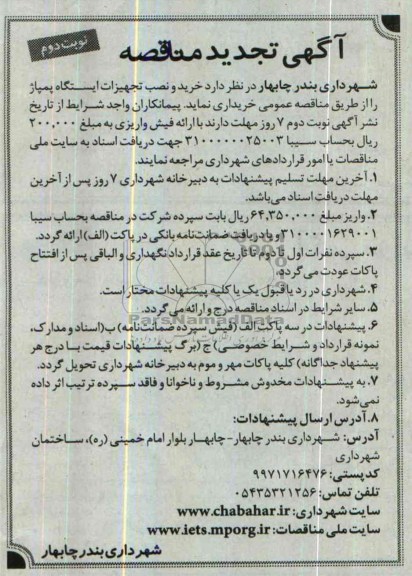 نوبت دوم
آگهی تجدید مناقصه
شهرداری بندر چابهار در نظر دارد خرید و نصب تجهیزات ایستگاه پمپاژ
را از طریق مناقصه عمومی خریداری نماید. پیمانکاران واجد شرایط از تاریخ
نشر آگهی نوبت دوم ۷ روز مهلت دارند با ارائه فیش واریزی به مبلغ ۲۰۰,۰۰۰
ریال بحساب سیبا ۳۱۰۰۰۰۰۰۲۵۰۰۳ جهت دریافت اسناد به سایت ملی
مناقصات یا امور قراردادهای شهرداری مراجعه نمایند.
۱. آخرین مهلت تسلیم پیشنهادات به دبیرخانه شهرداری ۷ روز پس از آخرین
مهلت دریافت اسناد می‌باشد.
۲. واریز مبلغ ۶۴,۳۵۰,۰۰۰ ریال بابت سپرده شرکت در مناقصه بحساب سیبا
۳۱۰۰۰۰۱۶۲۹۰۰۱ و یا دریافت ضمانت‌نامه بانکی در پاکت (الف) ارائه گردد.
۳. سپرده نفرات اول تا دوم تا تاریخ عقد قرارداد نگهداری و الباقی پس از افتتاح
پاکات عودت می‌گردد.
۴. شهرداری در رد یا قبول یک یا کلیه پیشنهادات مختار است.
۵. سایر شرایط در اسناد مناقصه درج و ارائه می‌گردد.
ParsNamadData
۶. پیشنهادات در سه پاکت الف (فیش سپرده ضمانت‌نامه) ب (اسناد و مدارک،
نمونه قرارداد و شرایط خصوصی) ج (برگ پیشنهادات قیمت با درج هر
پیشنهاد جداگانه) کلیه پاکات مهر و موم به دبیرخانه شهرداری تحویل گردد.
۷. به پیشنهادات مخدوش مشروط و ناخوانا و فاقد سپرده ترتیب اثر داده
نمی‌شود.
۸. آدرس ارسال پیشنهادات:
آدرس: شهرداری بندر چابهار- چابهار بلوار امام خمینی (ره)، ساختمان
شهرداری
کدپستی: ۹۹۷۱۷۱۶۴۷۶
تلفن تماس: ۰۵۴۳۵۳۲۱۲۵۶
سایت شهرداری: www.chabahar.ir
سایت ملی مناقصات: www.iets.mporg.ir
شهرداری بندر چابهار